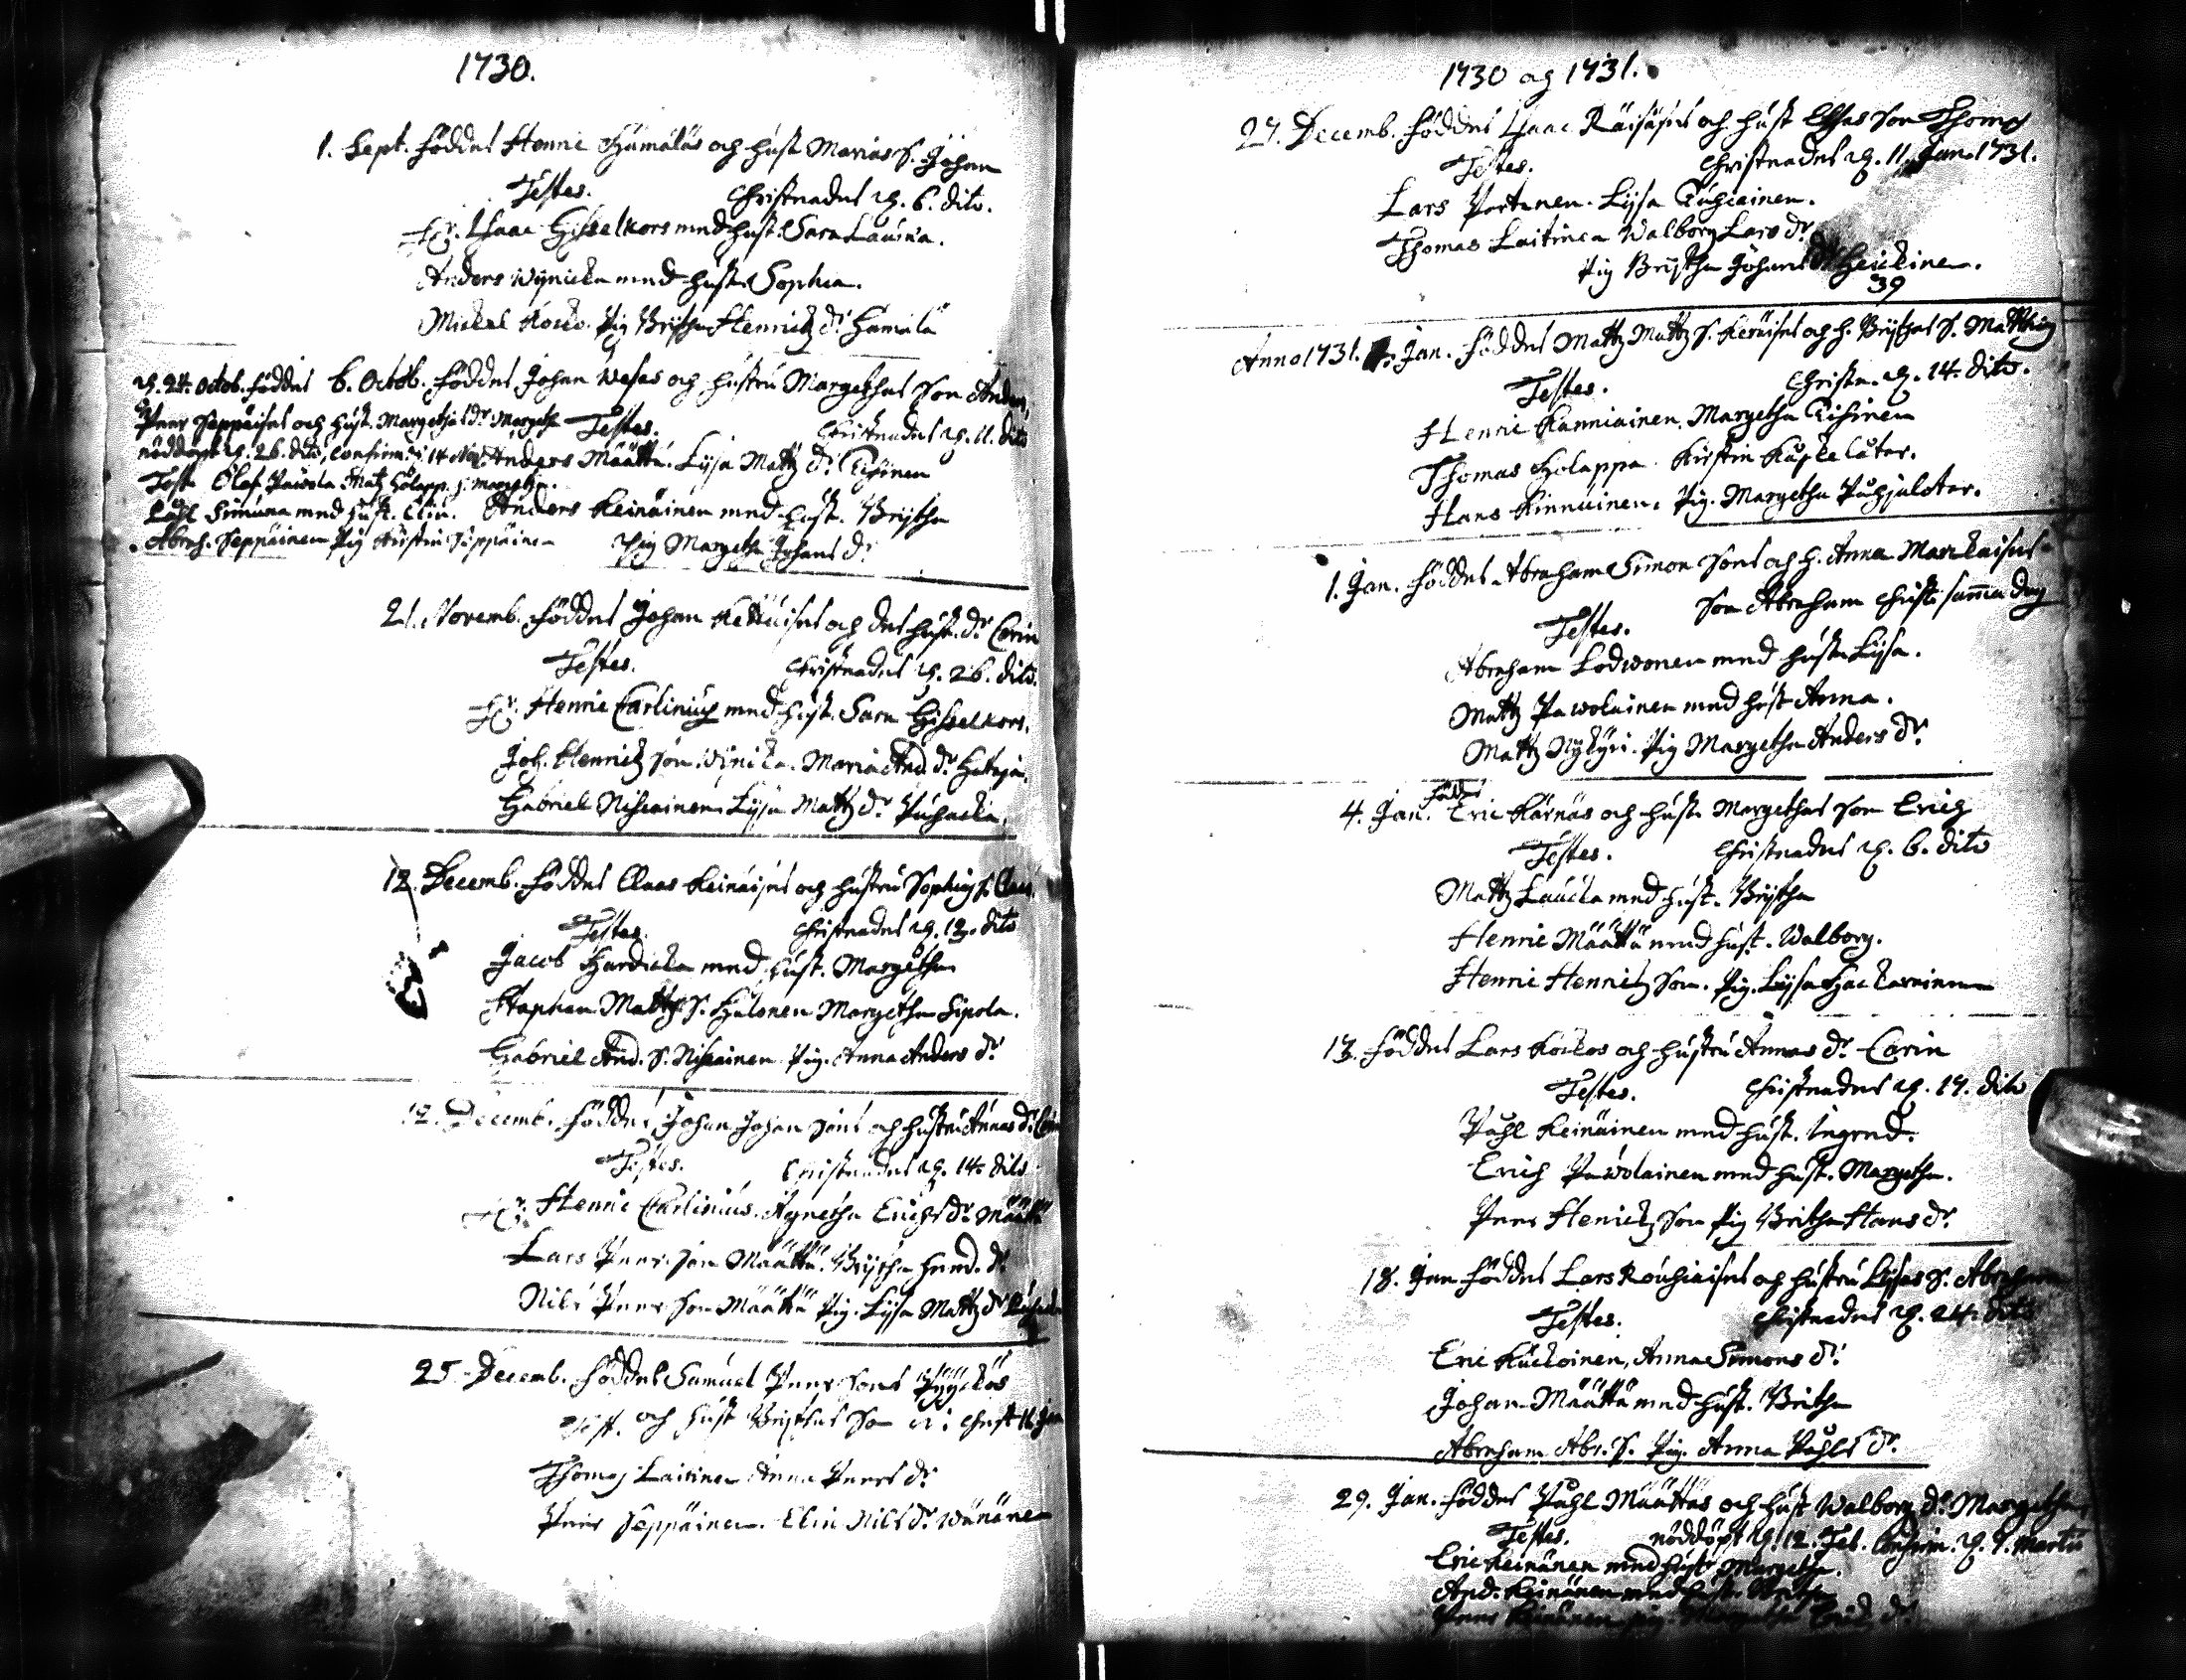 1730.
1. Sept. föddes Henric Hämäläs och hust Marias S. Johan
Testes. Christnades d. 6. dito.
Hr. Isaac Hisselkors med hust. Sara Lauræa.
Anders Wynicka med hust. Sophia.
Mickel Kocko. Pig Brijtha Henricks dr Hämälä
d. 24. Octob. föddes
Peer Seppäises och hust. Margethas dr Margeth
nöddöpt d. 26. dito, Confirm. d. 14 Nov.
Test. Olof Pawola. Matz Holapp. h. Margetha.
Påhl Simuna med hust. Elin.
Abrah. Seppäinen Pig Kirstin Seppäinen
6. Octob. föddes Johan Wesas och hustru Margethas Son Anders,
Testes. Christnades d. 11. dito
Anders Määttä. Lysa Mattz dr Kihinen
Anders Keinäinen med hust. Brijtha
Pig Margetha Johans dr
21. Novemb. föddes Johan Kettuises och des hust. dr Carin
Testes. Christnades d. 26. dito.
Hr. Henric Carlinius med hust. Sara Hisselkors.
Joh. Henricks son Wynicka. Maria And. dr Hataja.
Gabriel Niskainen Lysa Mattz dr Puhacka.
12. Decemb. föddes Claas Keinäises och hustru Sophias S. Claes.
Testes. Christnades d. 13. dito
Jacob Hardicka med hust. Margetha
Staphan Mattz S. Hulonen Margetha Sipola.
Gabriel And. S. Niskainen Pig. Anna Anders dr
12. Decemb. föddes Johan Johan Sons och hustru Annas dr Carin
Testes. Christnades d. 14. dito
Hr. Henric Carlinius. Agnetha Erichs dr Määttä
Lars Peers son Määttä. Brijtha dr
Nils Peers Son Määttä Pig. Lysa Mattz dr Puhacka
25. Decemb. föddes Samuel Peer Sons Pyyckös
Test. och hust Brijthas Son christ 11 Jan
Thomas Laitinen Anna Peers dr
Peer Seppäinen. Elin Nils dr Wänänen
1730 og 1731.
27. Decemb. föddes Isaac Räisäses och hust Elsas Son Thomas
Testes. Christnades d. 11. Jan. 1731.
Lars Partanen. Lysa Kuhiainen.
Thomas Laitinen Walborg Lars dr
Pig Brijtha Johans dr Heickinen.
39
Anno 1731. Jan. föddes Mattz Mattz S. Keräises och h. Brijthas S. Matthias
Testes. Christn. d. 14. dito.
Henric Kanniainen. Margetha Kihinen
Thomas Holappa. Kirstin Käpälätar.
Hans Kinnuinen. Pig. Margetha Puhjulotar.
1. Jan. föddes Abraham Simon Sons och h. Anna Marckaises
Testes. Son Abraham christ. samma dag
Abraham Lodwonen med hust Lysa.
Mattz Pawolainen med hust Anna.
Mattz Nykyri. Pig Margetha Anders dr
4. Jan. föddes Eric Kärnäs och hust. Margethas Son Erich
Testes. Christnades d. 6. dito
Mattz Laucka med hust. Brijtha
Henric Määttä med hust. Walborg.
Henric Henricks Son. Pig. Lysa Hackarainen
13. föddes Lars Kockos och hustru Annas dr Carin
Testes. Christnades d. 17. dito
Påhl Keinäinen med hust. Ingred.
Erich Pawolainen med hust. Margetha.
Peer Henricks Son Pig Britha Hans dr
18. Jan föddes Lars Rouhiaises och hustru Lysas S. Abraham
Testes. Christnades d. 24. dito
Eric Kuckoinen, Anna Simons dr
Johan Määttä med hust. Britha
Abraham Abr. S. Pig. Anna Påhls dr
29. Jan. föddes Påhl Määttäs och hust Walborg dr Margetha
Testes. nöddöpt d. 12. Feb. Confirm. d. 7. Martii
Eric Keinänen med hust Margetha.
And. Keinänen med hust. Britha
Peer Keinänen pig. Margetha Erich dr